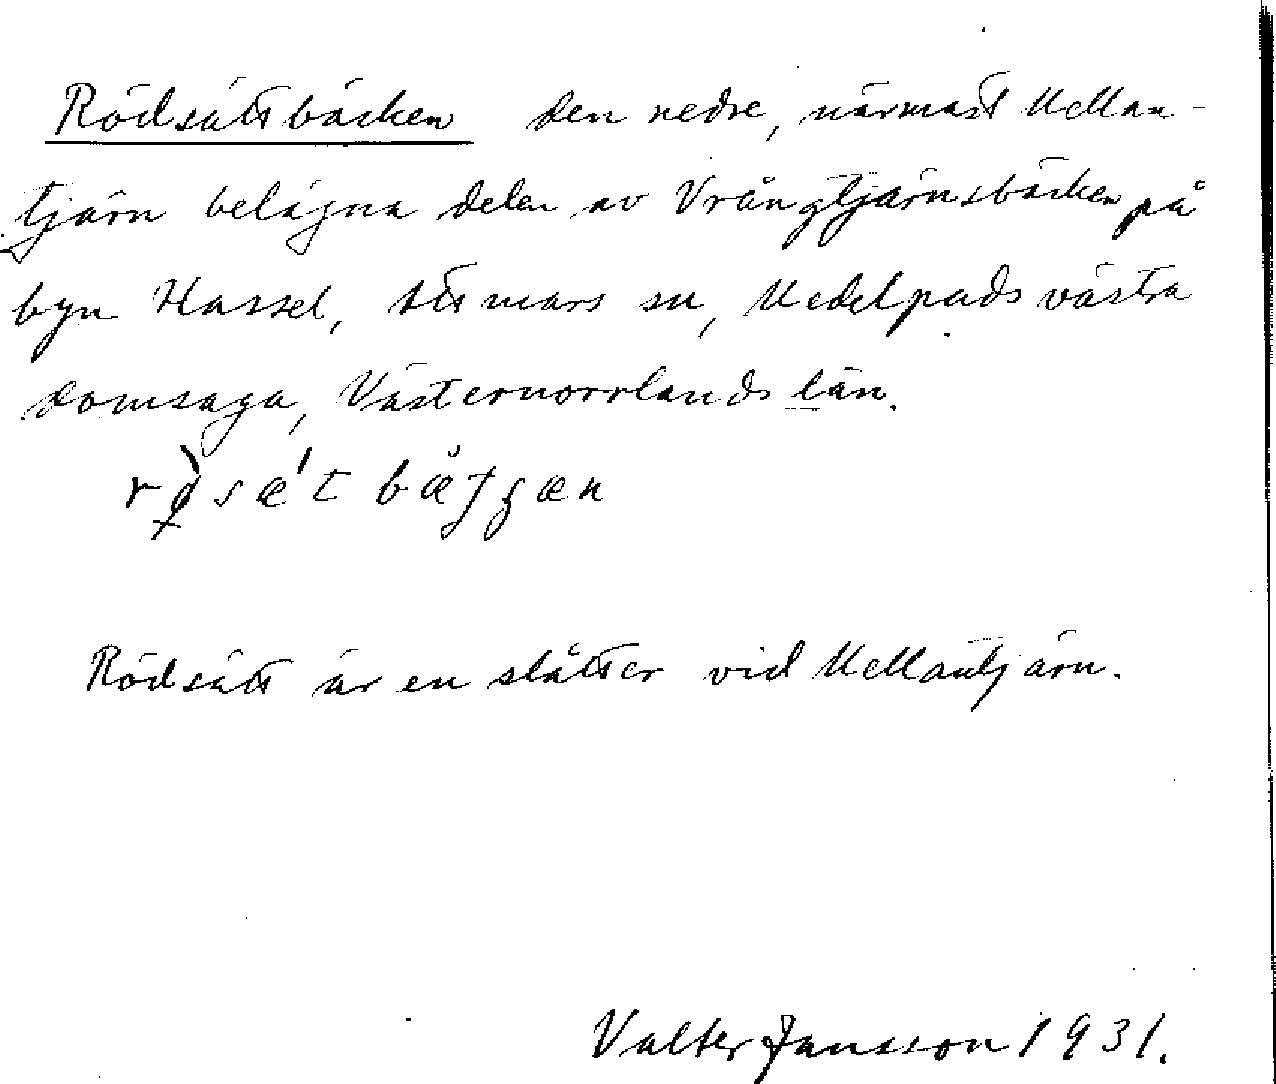 Rödsättbäcken den nedre, närmast Mellan-
tjärn belägna delen av Vrångtjärnsbäcken på
byn Hassel, Attmars sn, Medelpads västra
domsaga, Västernorrlands län.
Rödsätt är en slåtter vid Mellantjärn.
Valter Jansson 1931.